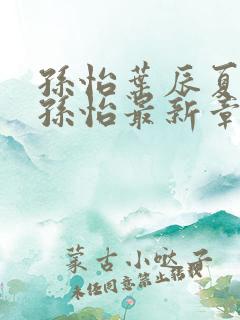 孫怡葉辰夏
孫怡最新章
蒙古小哒子
未任同意禁止转载